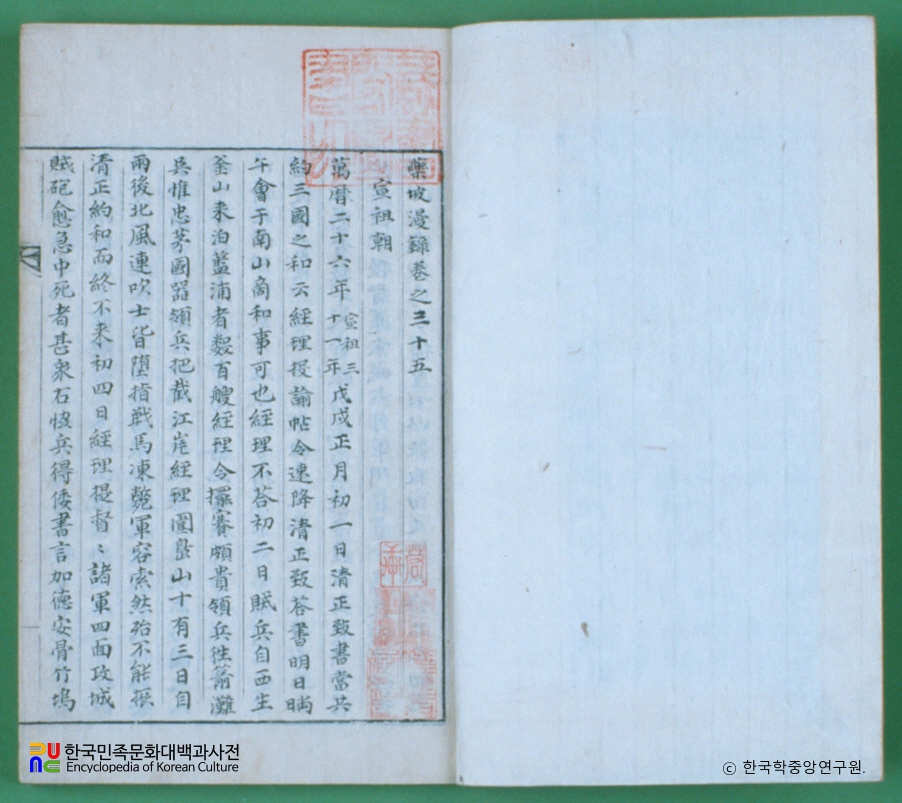 藥坡漫錄卷之三十五
宣祖朝
萬曆二十六年宣祖三十一年戊戌正月初一日淸正致書當共
約三國之和云經理投諭帖令速降淸正致答書明日晌
午會于南山商和事可也經理不答初二日賊兵自西生
釜山來泊藍浦者數百艘經理令擺賽頗貴領兵徃箭灘
兵惟忠茅國器領兵把截江岸經理圍島山十有三日自
雨後北風連吹士皆墮指戰馬凍斃軍容索然殆不能振
淸正約和而終不来初四日經理提督〻諸軍四面攻城
賊砲愈急中死者甚衆石恠兵得倭書言加德安骨竹塢
한국민족문화대백과사전
Encyclopedia of Korean Culture
ⓒ 한국학중앙연구원.